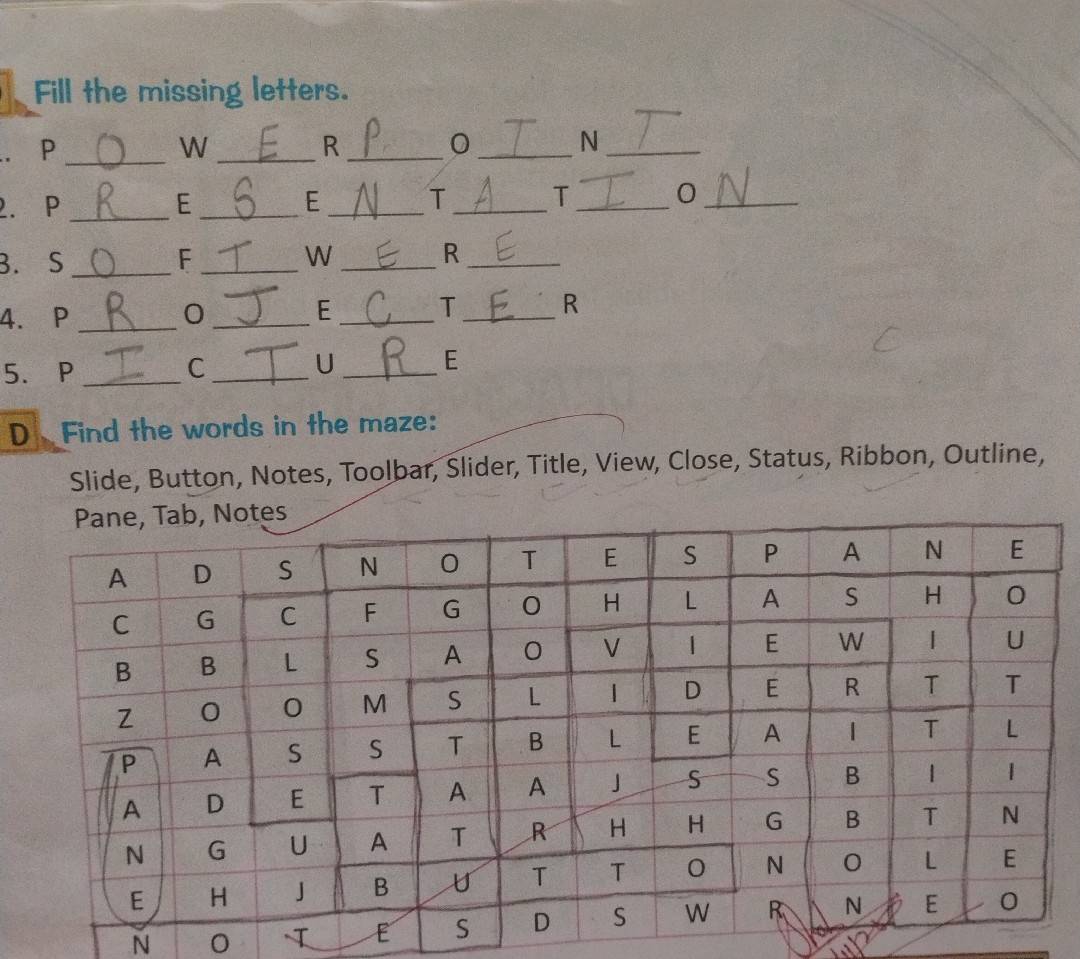 Fill the missing letters.
. P O W E R P O I N T
2. P R E S E N T A T I O N
3. S O F T W E R E
4. P R O J E C T E R
5. P I C T U R E
C
D Find the words in the maze:
Slide, Button, Notes, Toolbar, Slider, Title, View, Close, Status, Ribbon, Outline,
Pane, Tab, Notes
A D S N O T E S P A N E
C G C F G O H L A S H O
B B L S A O V I E W I U
Z O O M S L I D E R T T
P A S S T B L E A I T L
A D E T A A J S S B I I
N G U A T R H H G B T N
E H J B U T T O N O L E
N O T E S D S W R N E O